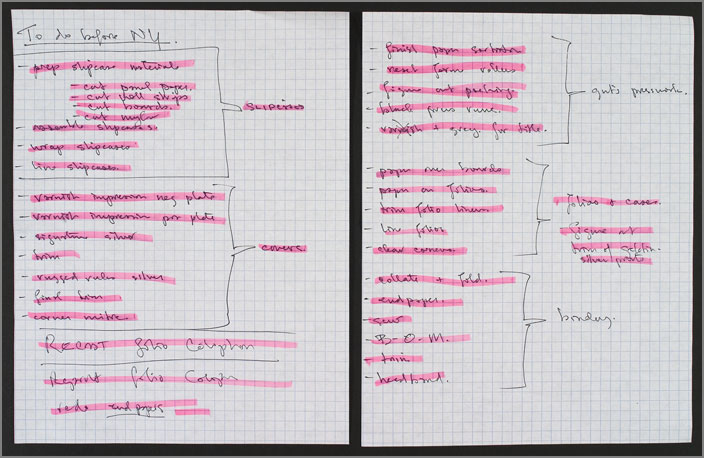 To do before NY.
- prep slipcase materials
- cut panel paper
- cut wall strips
- cut boards
- cut
- assemble slipcases
- wrap slipcases
- line slipcases
SLIPCASES
- varnish impression neg plate
- varnish impression pos plate
- signature silver
- trim
- rugged rules silver
- final trim
- corner mitre
COVERS
RECAST folio Colophon
Reprint folio Coloph
redo endpapers
- finish paper
- reset form rollers
- figure out packing
- black press runs
- varnish + grey for title.
guts presswork.
- paper over boards
- paper on folios
- trim folio liners
- line folios
- clear corners.
folios + cases.
figure out
trim of gelatin
silver prints
- collate + fold.
- endpaper.
- sew
- B.O.M.
- trim
- headband.
binding.